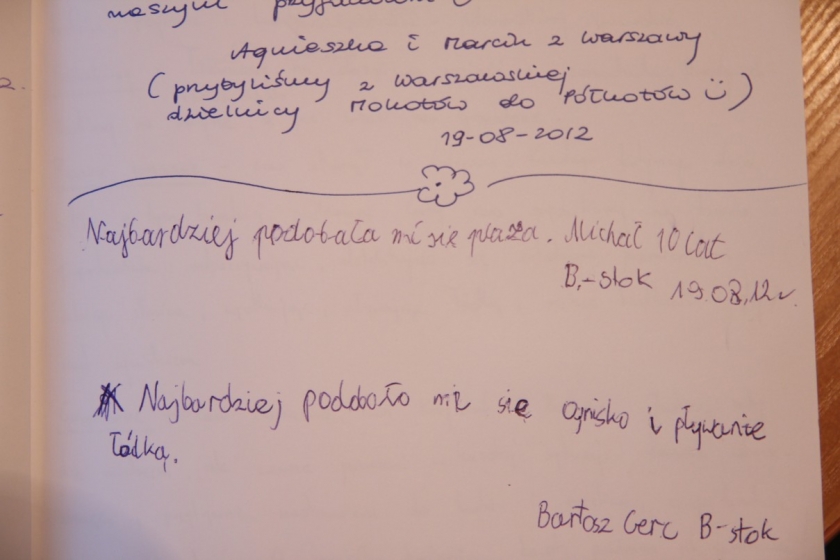 naszym
Agnieszka i Marcin z Warszawy
(przybyliśmy z warszawskiej
dzielnicy Mokotów do Półkotów)
19-08-2012
Najbardziej podobała mi się plaża. Michał 10 lat
B.-stok 19.08.12r.
Najbardziej podobało mi się ognisko i pływanie
łódką.
Bartosz Gerc B-stok